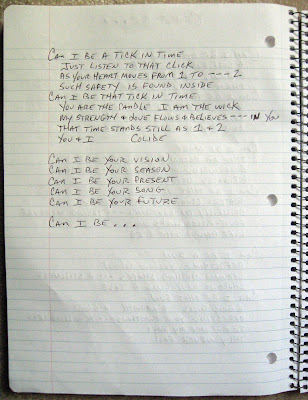 CAN I BE A TICK IN TIME
JUST LISTEN TO THAT CLICK
AS YOUR HEART MOVES FROM 1 TO --- 2
SUCH SAFETY IS FOUND INSIDE
CAN I BE THAT TICK IN TIME
YOU ARE THE CANDLE I AM THE WICK
MY STRENGTH & LOVE FLOWS & BELIEVES --- IN YOU
THAT TIME STANDS STILL AS 1 + 2
YOU & I COLIDE
CAN I BE YOUR VISION
CAN I BE YOUR SEASON
CAN I BE YOUR PRESENT
CAN I BE YOUR SONG
CAN I BE YOUR FUTURE
CAN I BE . . .